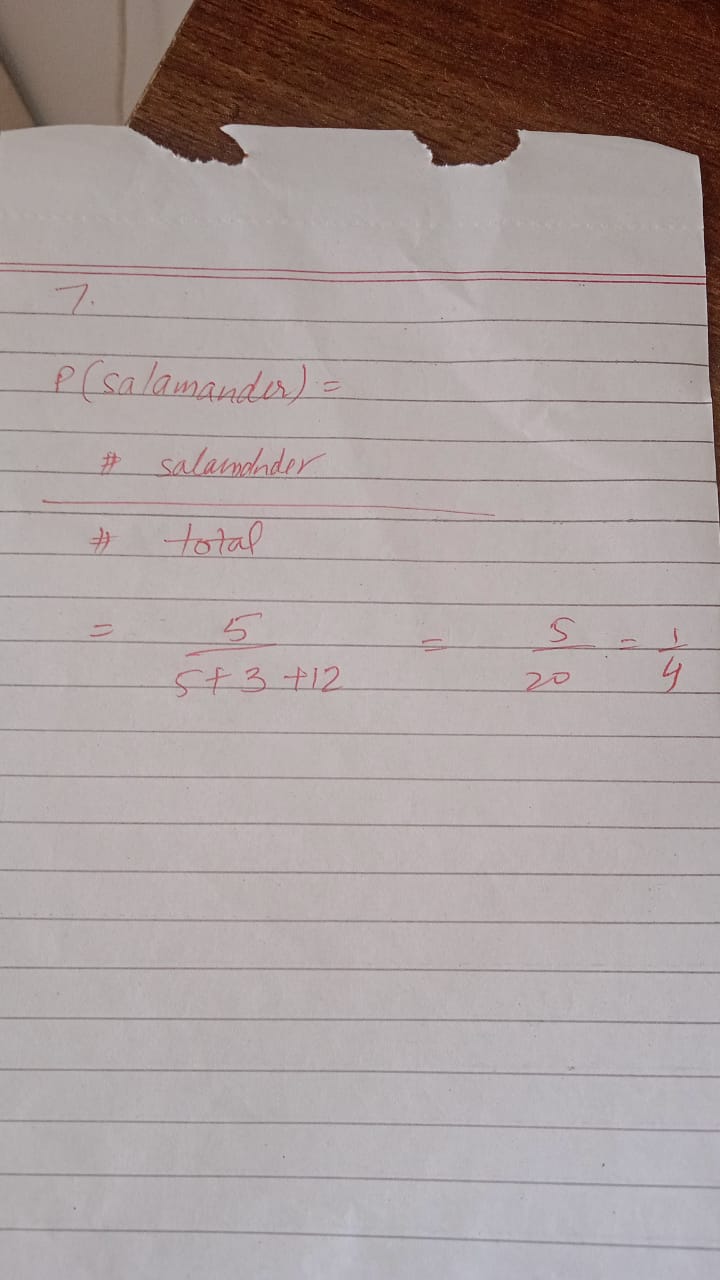 7.
P(salamander) =
# salamander
# total
= 5 / 5+3+12 = 5/20 = 1/4